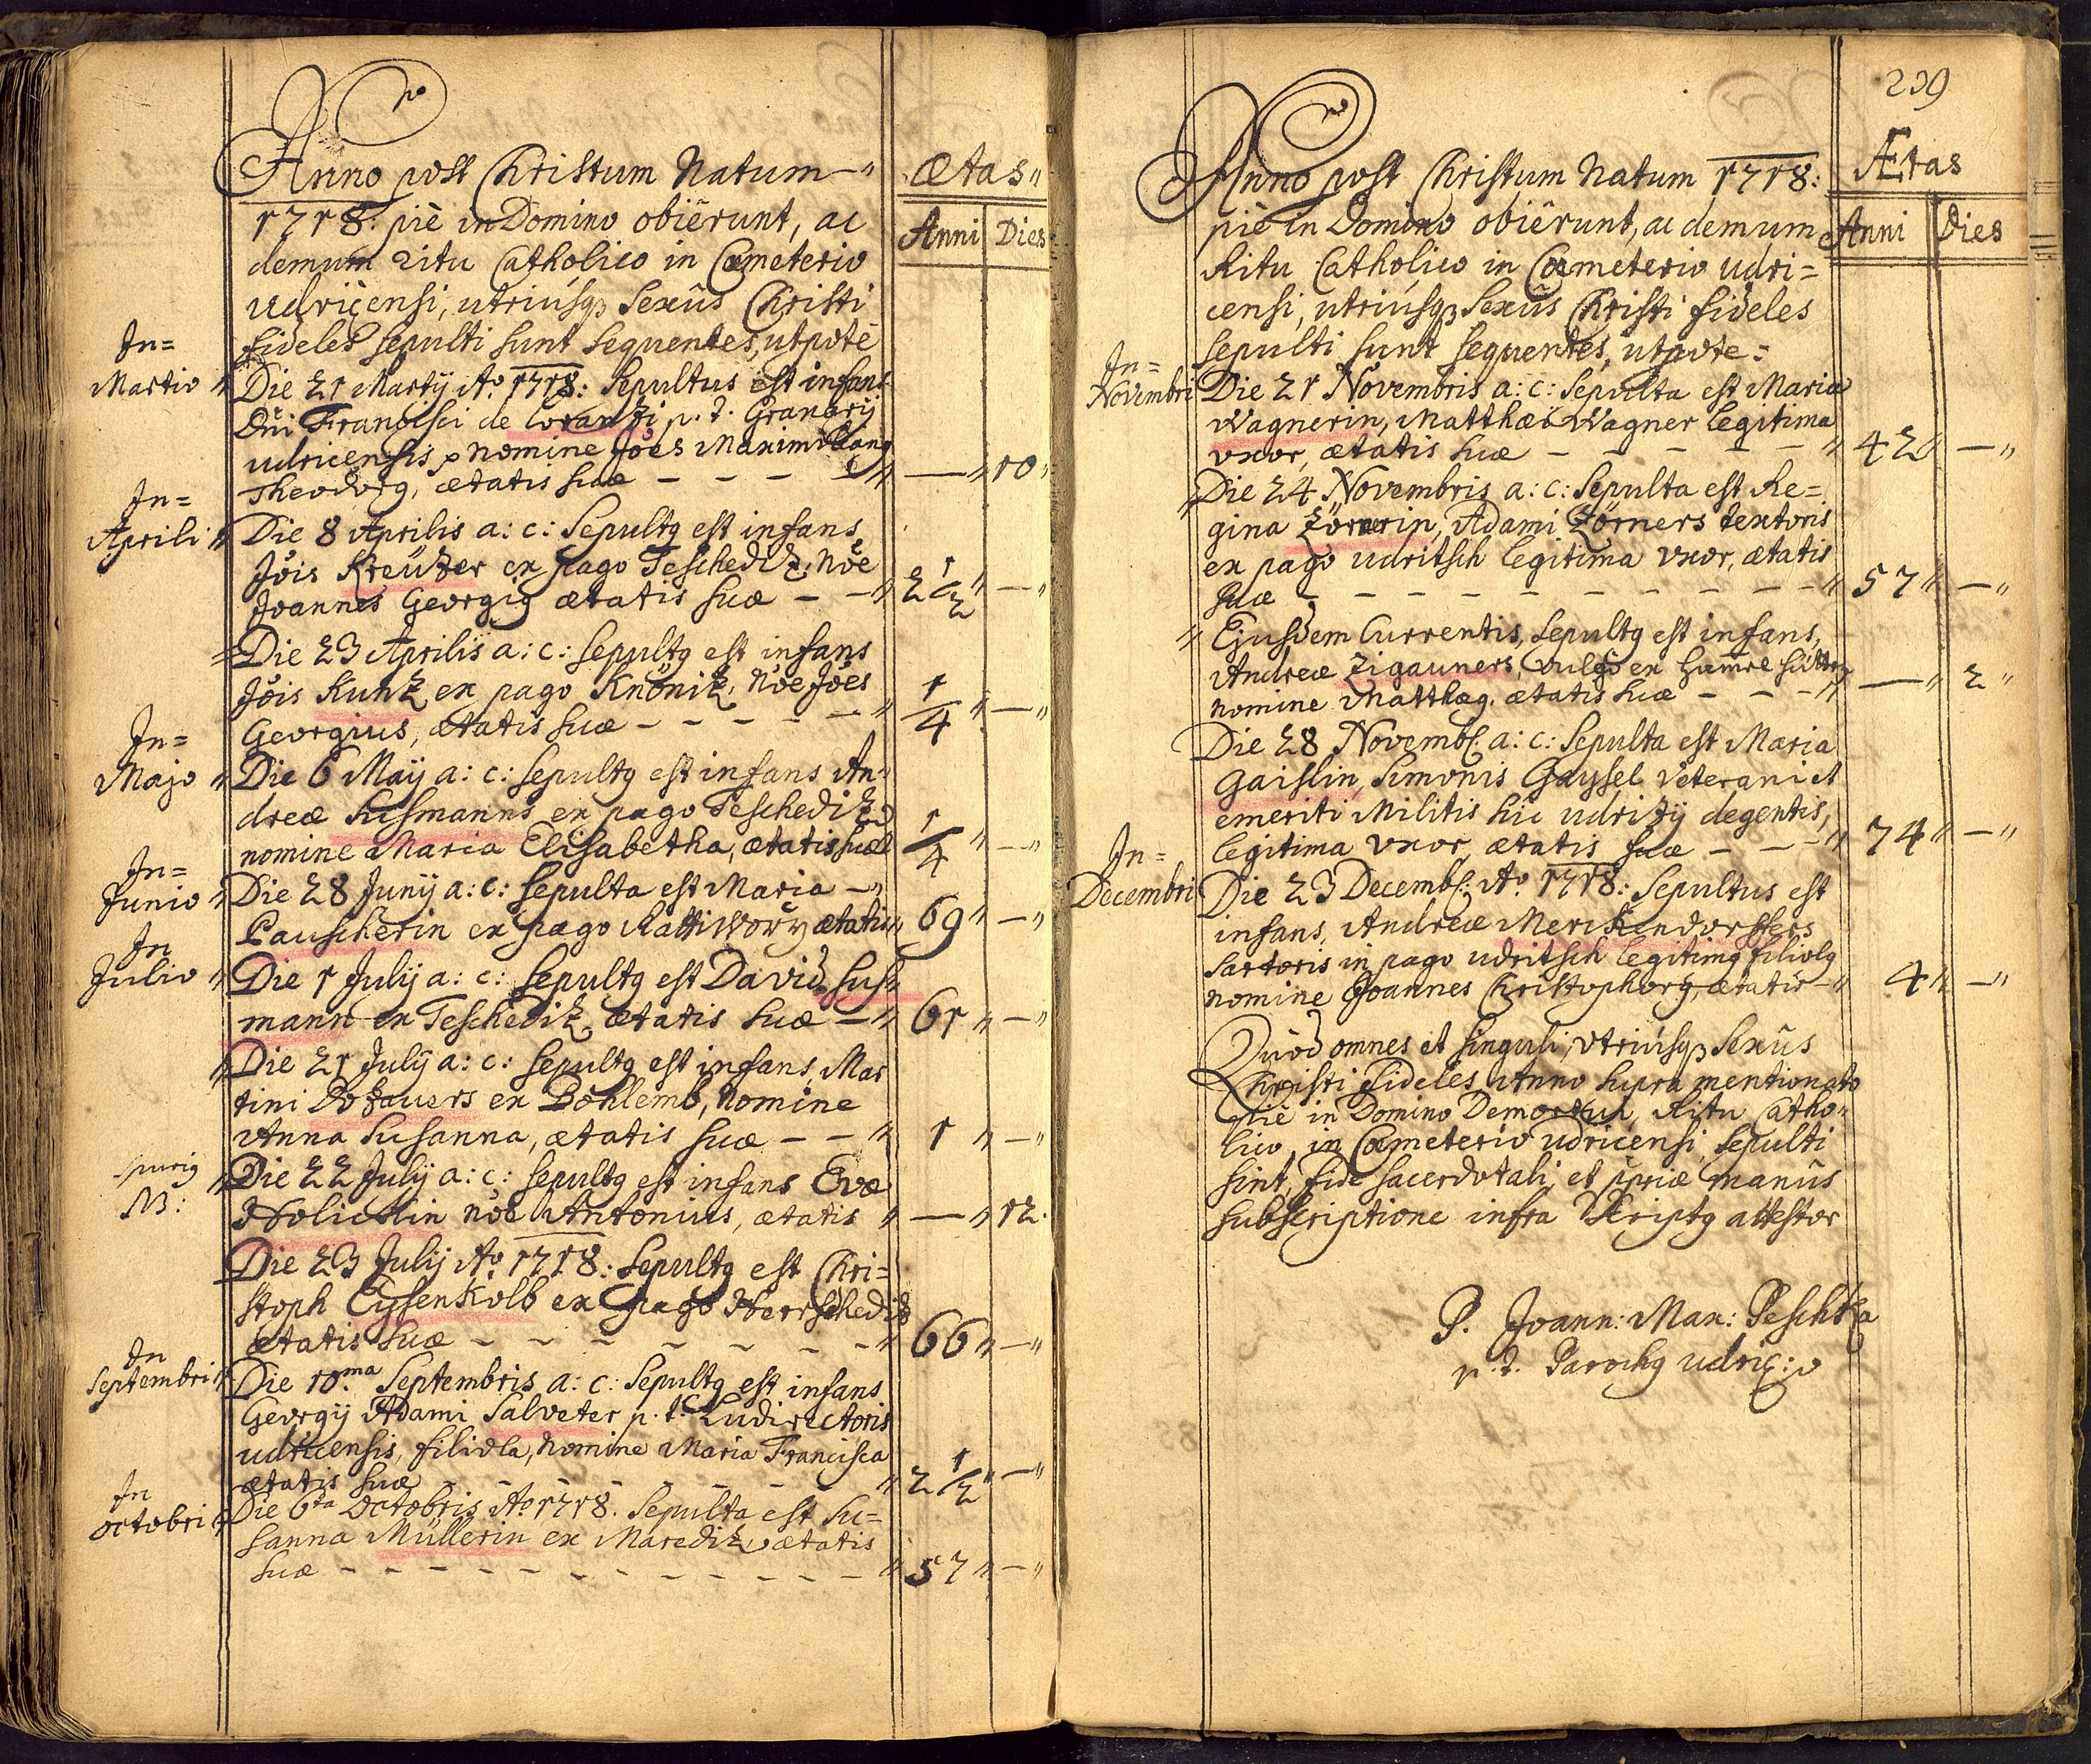 Anno post Christum Natum
1718: piè in Domino obiêrunt, ac
demum ritu Catholico in Cœmeterio
udricensi, utriúsq₃ Sexûs Christi
fideles sepulti sunt sequentes, utpotè
ætas
Anni Dies
In=
Martio
Die 21 Martÿ Aº 1718: Sepultus est infans
Dñi Francisci de p. t. Granarÿ
udricensis nomine Jões Maximilian9
Theodor9, ætatis suæ — 10
In=
Aprili
Die 8 Aprilis a: c: Sepult9 est infans
Jõis Kreützer ex pago Teschediz, nõe
Joannes Georgi9 ætatis suæ 2 1/2 —
Die 23 Aprilis a: c: sepult9 est infans
Jõis Kuntz ex pago Knöniz, nõe Jões
Georgius, ætatis suæ 1/4 —
In=
Majo
Die 6 Maÿ a: c: sepult9 est infans An=
dreæ Susmanns ex pago Teschediz
nomine Maria Elisabetha, ætatis suæ 1/4 —
In=
Junio
Die 28 Junÿ a: c: sepulta est Maria
Pauscherin ex pago ætatis 69 —
In
Julio
Die 1 Julÿ a: c: sepult9 est David Sus=
mann ex Teschediz, ætatis suæ 61 —
Die 21 Julÿ a: c: sepult9 est infans, Mar
tini Dotzauers ex Böhlemb, nomine
Anna Susanna, ætatis suæ 1 —
spuri9
NB:
Die 22 Julÿ a: c: sepult9 est infans Evæ
nõe Antonius, ætatis — 12.
Die 23 Julÿ Aº 1718: Sepult9 est Chri=
stoph EysenKolb ex pago Herrschediz
ætatis suæ 66 —
In
Septembri
Die 10.ma Septembris a: c: Sepult9 est infans
Georgÿ Adami Salveter p. t. Ludirectoris
udricensis, filiola, nomine Maria Francisca
ætatis suæ 2 1/2 —
In
octobri
Die 6ta Octobris Aº 1718. Sepulta est Su=
sanna Müllerin ex Marediz, ætatis
suæ 57 —
239
Anno post Christum Natum 1718:
piè in Domino obiêrunt, ac demum
Ritu Catholico in Cœmeterio udri=
censi, utriúsq₃ Sexûs Christi fideles
sepulti sunt sequentes, utpote:
Ætas
Anni Dies
In=
Novembri
Die 21 Novembris a: c: Sepulta est Maria
Wagnerin, Matthæi Wagner legitima
vxor, ætatis suæ 42 —
Die 24 Novembris a: c: Sepulta est Re=
gina Zörnerin, Adami Zörners textoris
ex pago udritsch legitima vxor, ætatis
suæ 57 —
Ejusdem Currentis, sepult9 est infans,
Andreæ Zigauners, vulgò ex
nomine Matthæ9, ætatis suæ — 2
Die 28 Novemb: a: c: Sepulta est Maria
Gaislin, Simonis Gaysel veterani et
emeriti Militis hic udrizÿ degentis,
legitima vxor, ætatis suæ 74 —
In=
Decembri
Die 23 Decemb: Aº 1718: Sepultus est
infans, Andreæ Merckendorffers
Sartoris in pago udritsch legitim9 filiol9
nomine Joannes Christophor9, ætatis 4 —
Quòd omnes et singuli, vtriúsq₃ Sexûs
Christi fideles Anno supra mentionato
piè in Domino Demortui, Ritu Catho=
lico, in Cœmeterio udricensi, sepulti
sint, fide sacerdotali, et ppriæ manûs
subscriptione infra Script9 attestor
P. Joann: Max: Peschka
p. t. Paroch9 udric: